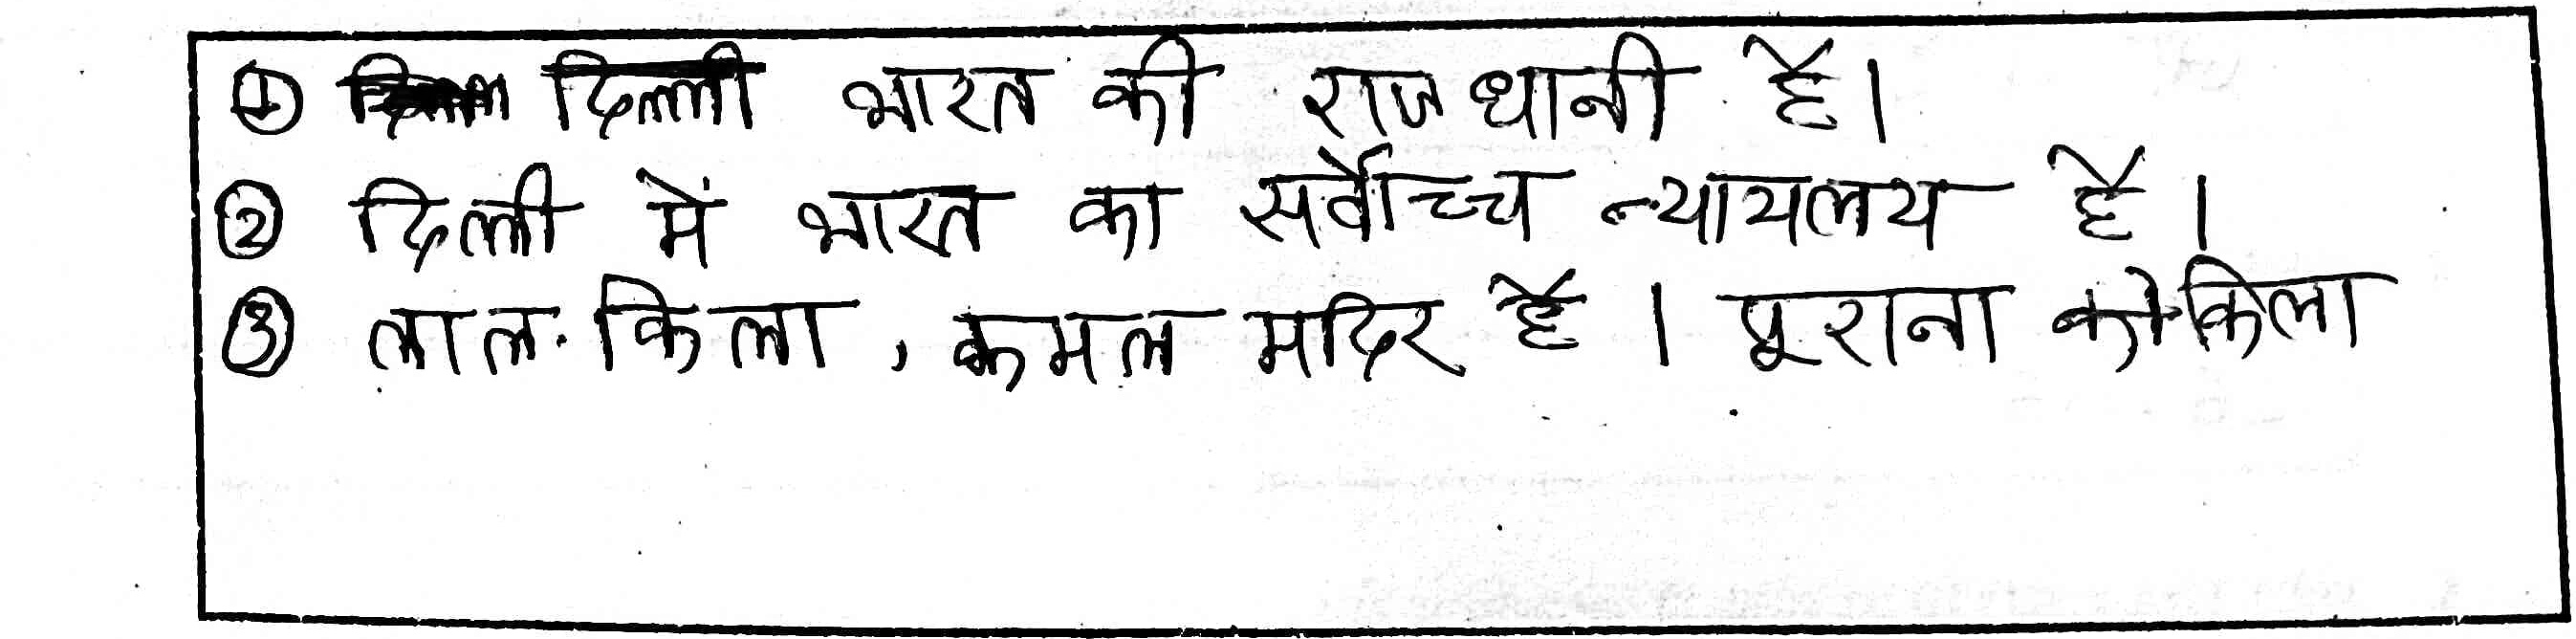 ① दिल्ली भारत की राजधानी है।
② दिल्ली में भारत का सर्वोच्च न्यायलय है।
③ लाल किला, कमल मदिर है। पूराना किला